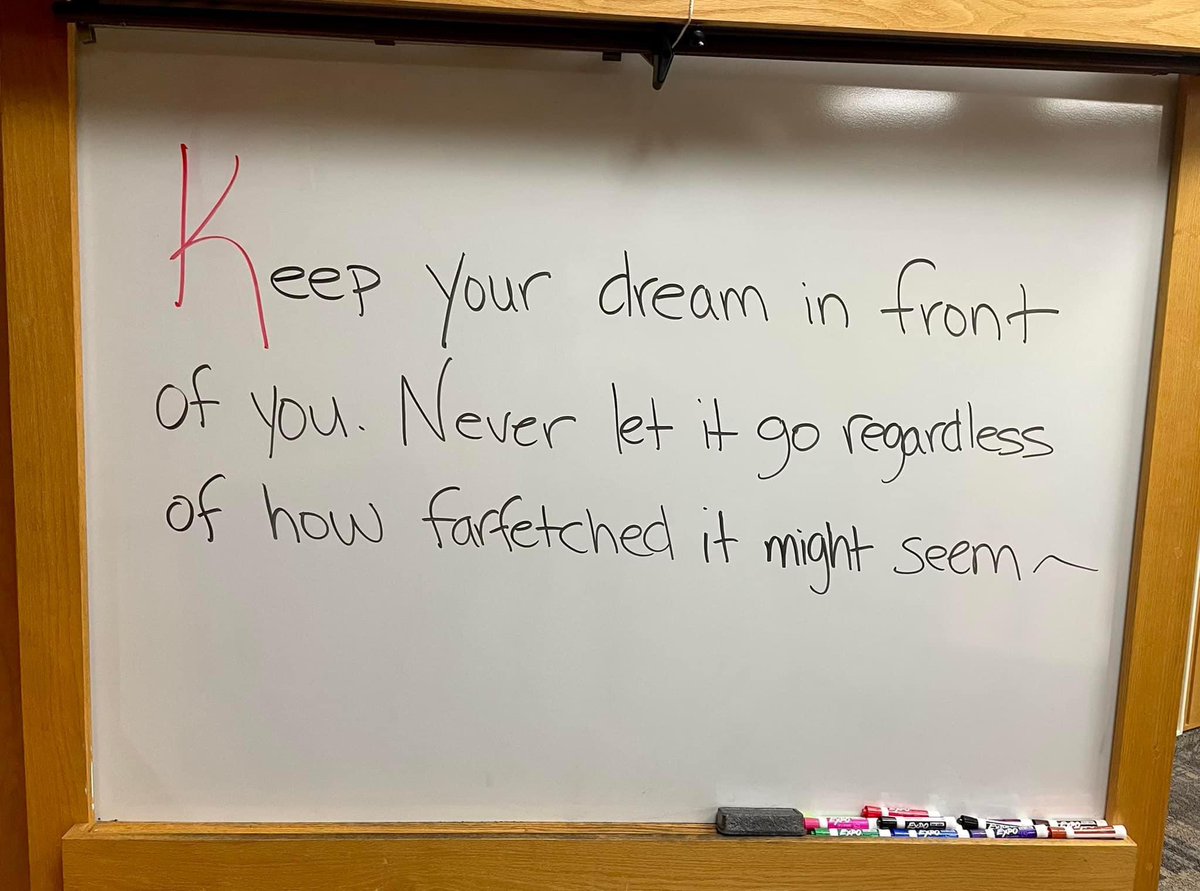 Keep your dream in front
of you. Never let it go regardless
of how farfetched it might seem~
EXPO
EXPO
EXPO
EXPO